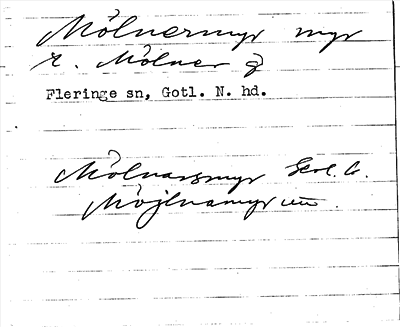 Mölnermyr myr
r. Mölner
Fleringe sn, Gotl. N. hd.
Mölnarsmyr
Möjlnamyr